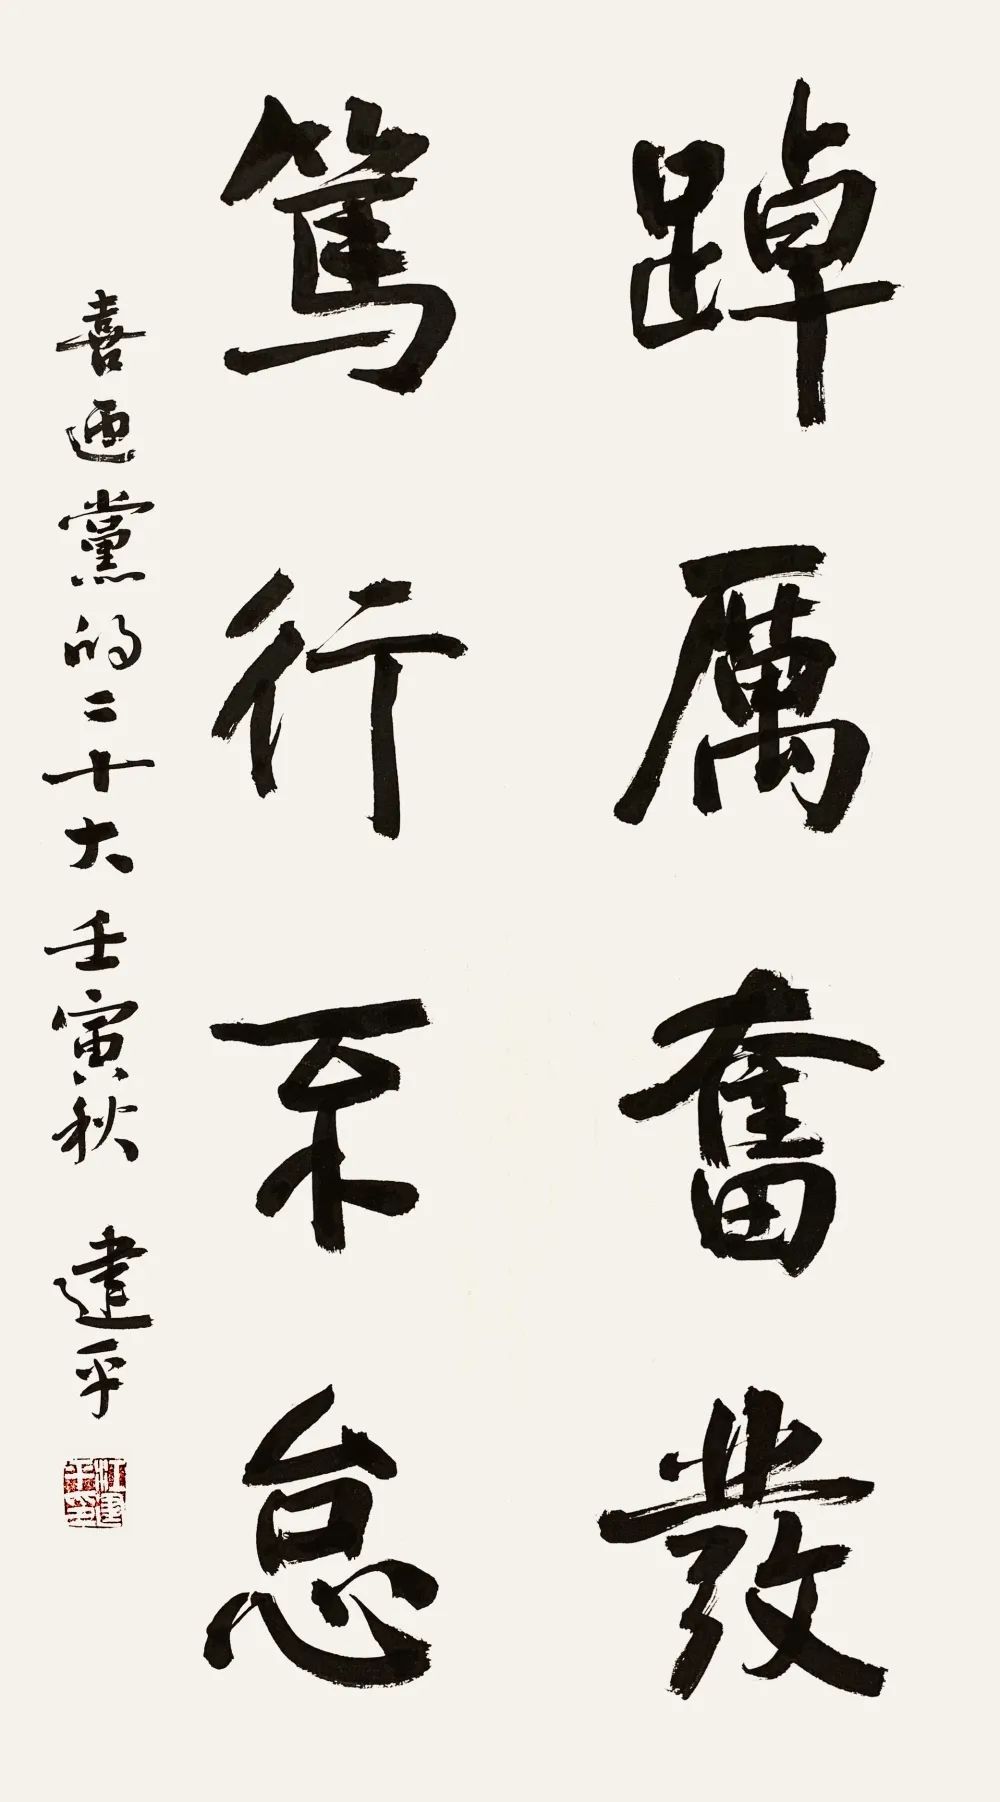 踔厲奮發
篤行不怠
喜迎黨的二十大 壬寅秋 建平